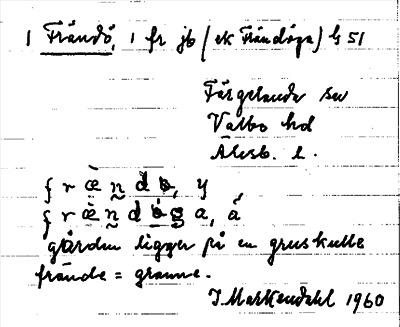 1 Frändö, 1 fr jb (ek Frändöga) b 51
Färgelanda sn
Valbo hd
Älvsb. l.
f r æ̀ n d ɵ, y
f r æ̀ n d ɵ g a, á
gården ligger på en gruskulle
frände = granne.
J. Markendahl 1960